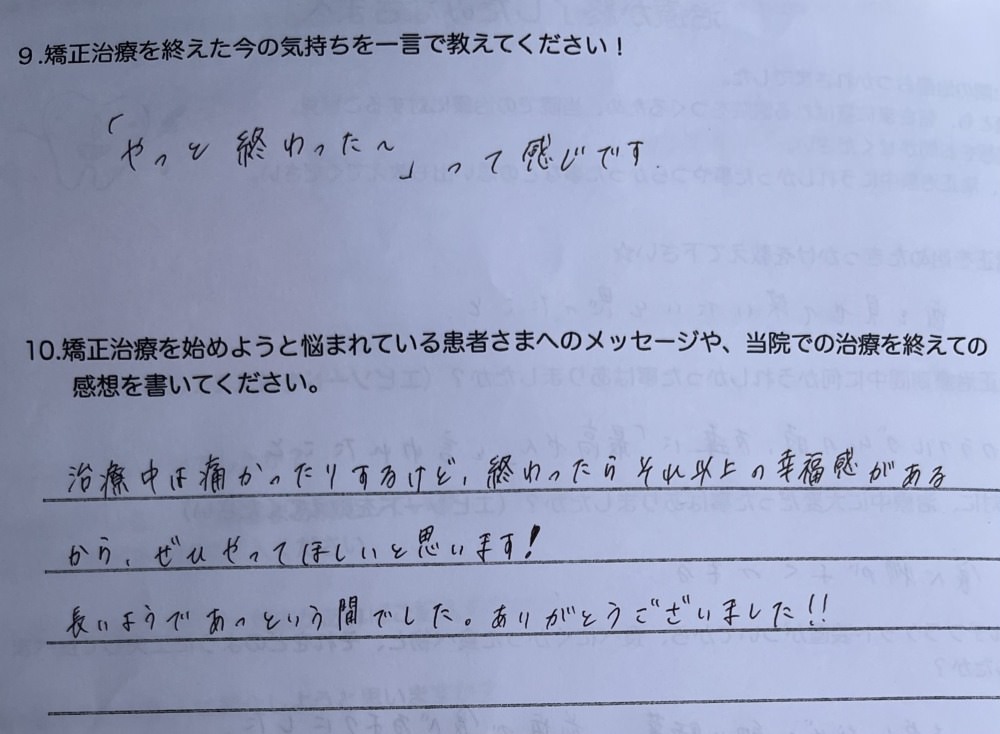 9.矯正治療を終えた今の気持ちを一言で教えてください!
「やっと終わった〜」って感じです.
10.矯正治療を始めようと悩まれている患者さまへのメッセージや、当院での治療を終えての
感想を書いてください。
治療中は痛かったりするけど、終わったらそれ以上の幸福感がある
から、ぜひやってほしいと思います!
長いようであっという間でした。ありがとうございました!!